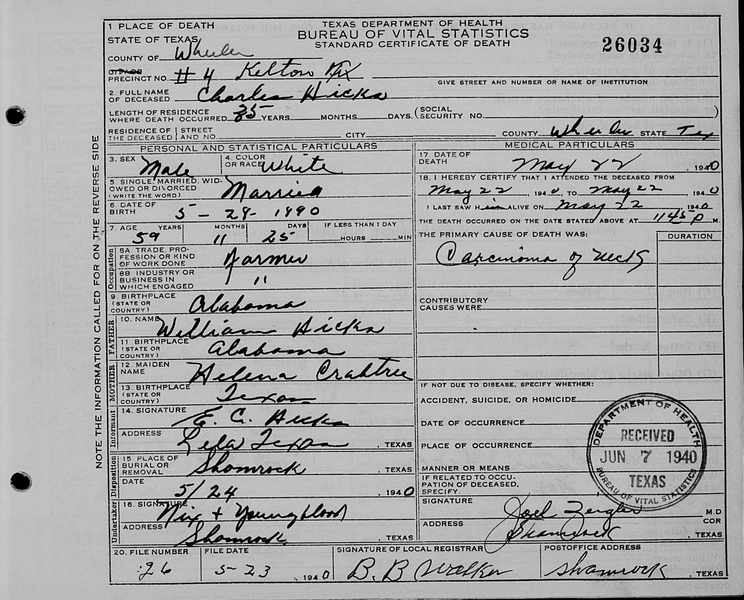 TEXAS DEPARTMENT OF HEALTH
BUREAU OF VITAL STATISTICS
STANDARD CERTIFICATE OF DEATH
26034
1 PLACE OF DEATH
STATE OF TEXAS
COUNTY OF Wheeler
PRECINCT NO. #4 Kelton
GIVE STREET AND NUMBER OR NAME OF INSTITUTION
2. FULL NAME OF DECEASED Charles Hicks
LENGTH OF RESIDENCE
WHERE DEATH OCCURRED 35 YEARS MONTHS DAYS. (SOCIAL SECURITY NO.
RESIDENCE OF THE DECEASED STREET AND NO. CITY COUNTY Wheeler STATE Tex
PERSONAL AND STATISTICAL PARTICULARS
3. SEX Male 4. COLOR OR RACE White
5. SINGLE, MARRIED, WIDOWED OR DIVORCED (WRITE THE WORD) Married
6. DATE OF BIRTH 5-29-1880
7. AGE YEARS MONTHS DAYS IF LESS THAN 1 DAY
59 11 25 HOURS MIN
8A. TRADE, PROFESSION OR KIND OF WORK DONE Farmer
8B. INDUSTRY OR BUSINESS IN WHICH ENGAGED "
9. BIRTHPLACE (STATE OR COUNTRY) Alabama
10. NAME William Hicks
11. BIRTHPLACE (STATE OR COUNTRY) Alabama
12. MAIDEN NAME Helena Crabtree
13. BIRTHPLACE (STATE OR COUNTRY) Texas
14. SIGNATURE E. C. Hicks
ADDRESS Lela Texas, TEXAS
15. PLACE OF BURIAL OR REMOVAL Shamrock
DATE 5/24 1940
16. SIGNATURE Nix + Youngblood
ADDRESS Shamrock, TEXAS
MEDICAL PARTICULARS
17. DATE OF DEATH May 22 1940
18. I HEREBY CERTIFY THAT I ATTENDED THE DECEASED FROM
May 22 1940, TO May 22 1940
I LAST SAW Him ALIVE ON May 22 1940
THE DEATH OCCURRED ON THE DATE STATED ABOVE AT 1145 P M.
THE PRIMARY CAUSE OF DEATH WAS: DURATION
Carcinoma of neck
CONTRIBUTORY CAUSES WERE:
IF NOT DUE TO DISEASE, SPECIFY WHETHER:
ACCIDENT, SUICIDE, OR HOMICIDE
DATE OF OCCURRENCE
PLACE OF OCCURRENCE
MANNER OR MEANS
IF RELATED TO OCCUPATION OF DECEASED, SPECIFY
SIGNATURE Joel Zeigler M.D
ADDRESS Shamrock COR, TEXAS
DEPARTMENT OF HEALTH
RECEIVED
JUN 7 1940
TEXAS
BUREAU OF VITAL STATISTICS
20. FILE NUMBER FILE DATE SIGNATURE OF LOCAL REGISTRAR POSTOFFICE ADDRESS
26 5-23, 1940 B. B Walker Shamrock, TEXAS
NOTE THE INFORMATION CALLED FOR ON THE REVERSE SIDE
Occupation
FATHER
MOTHER
Informant
Disposition
Undertaker